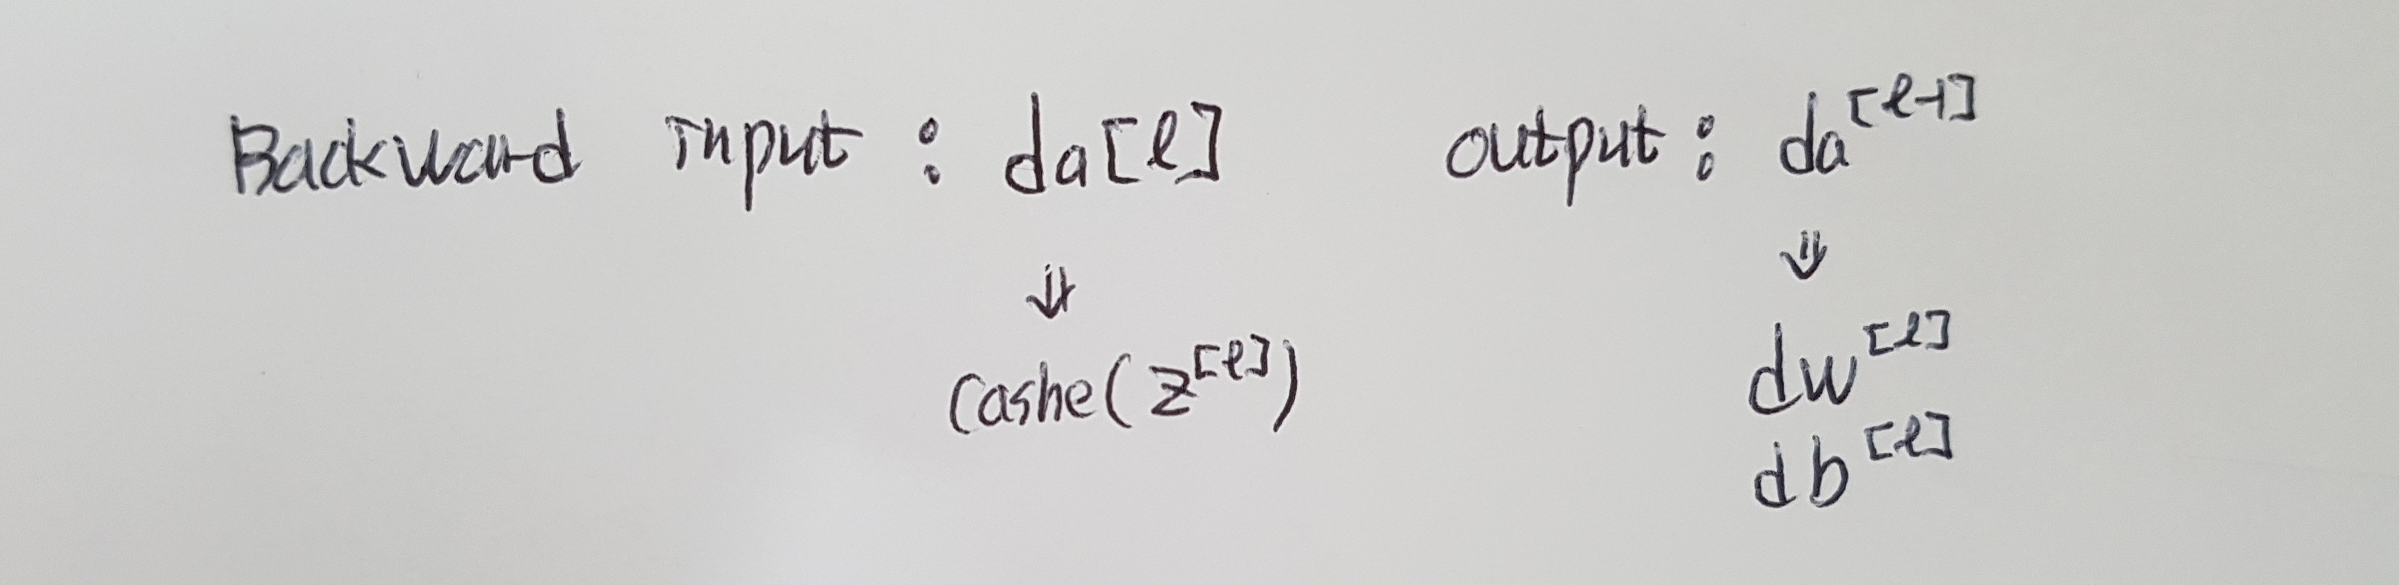 Backward input : da[l] output : da^[l-1]
⇓ ⇓
cashe(z^[l]) dw^[l]
db^[l]